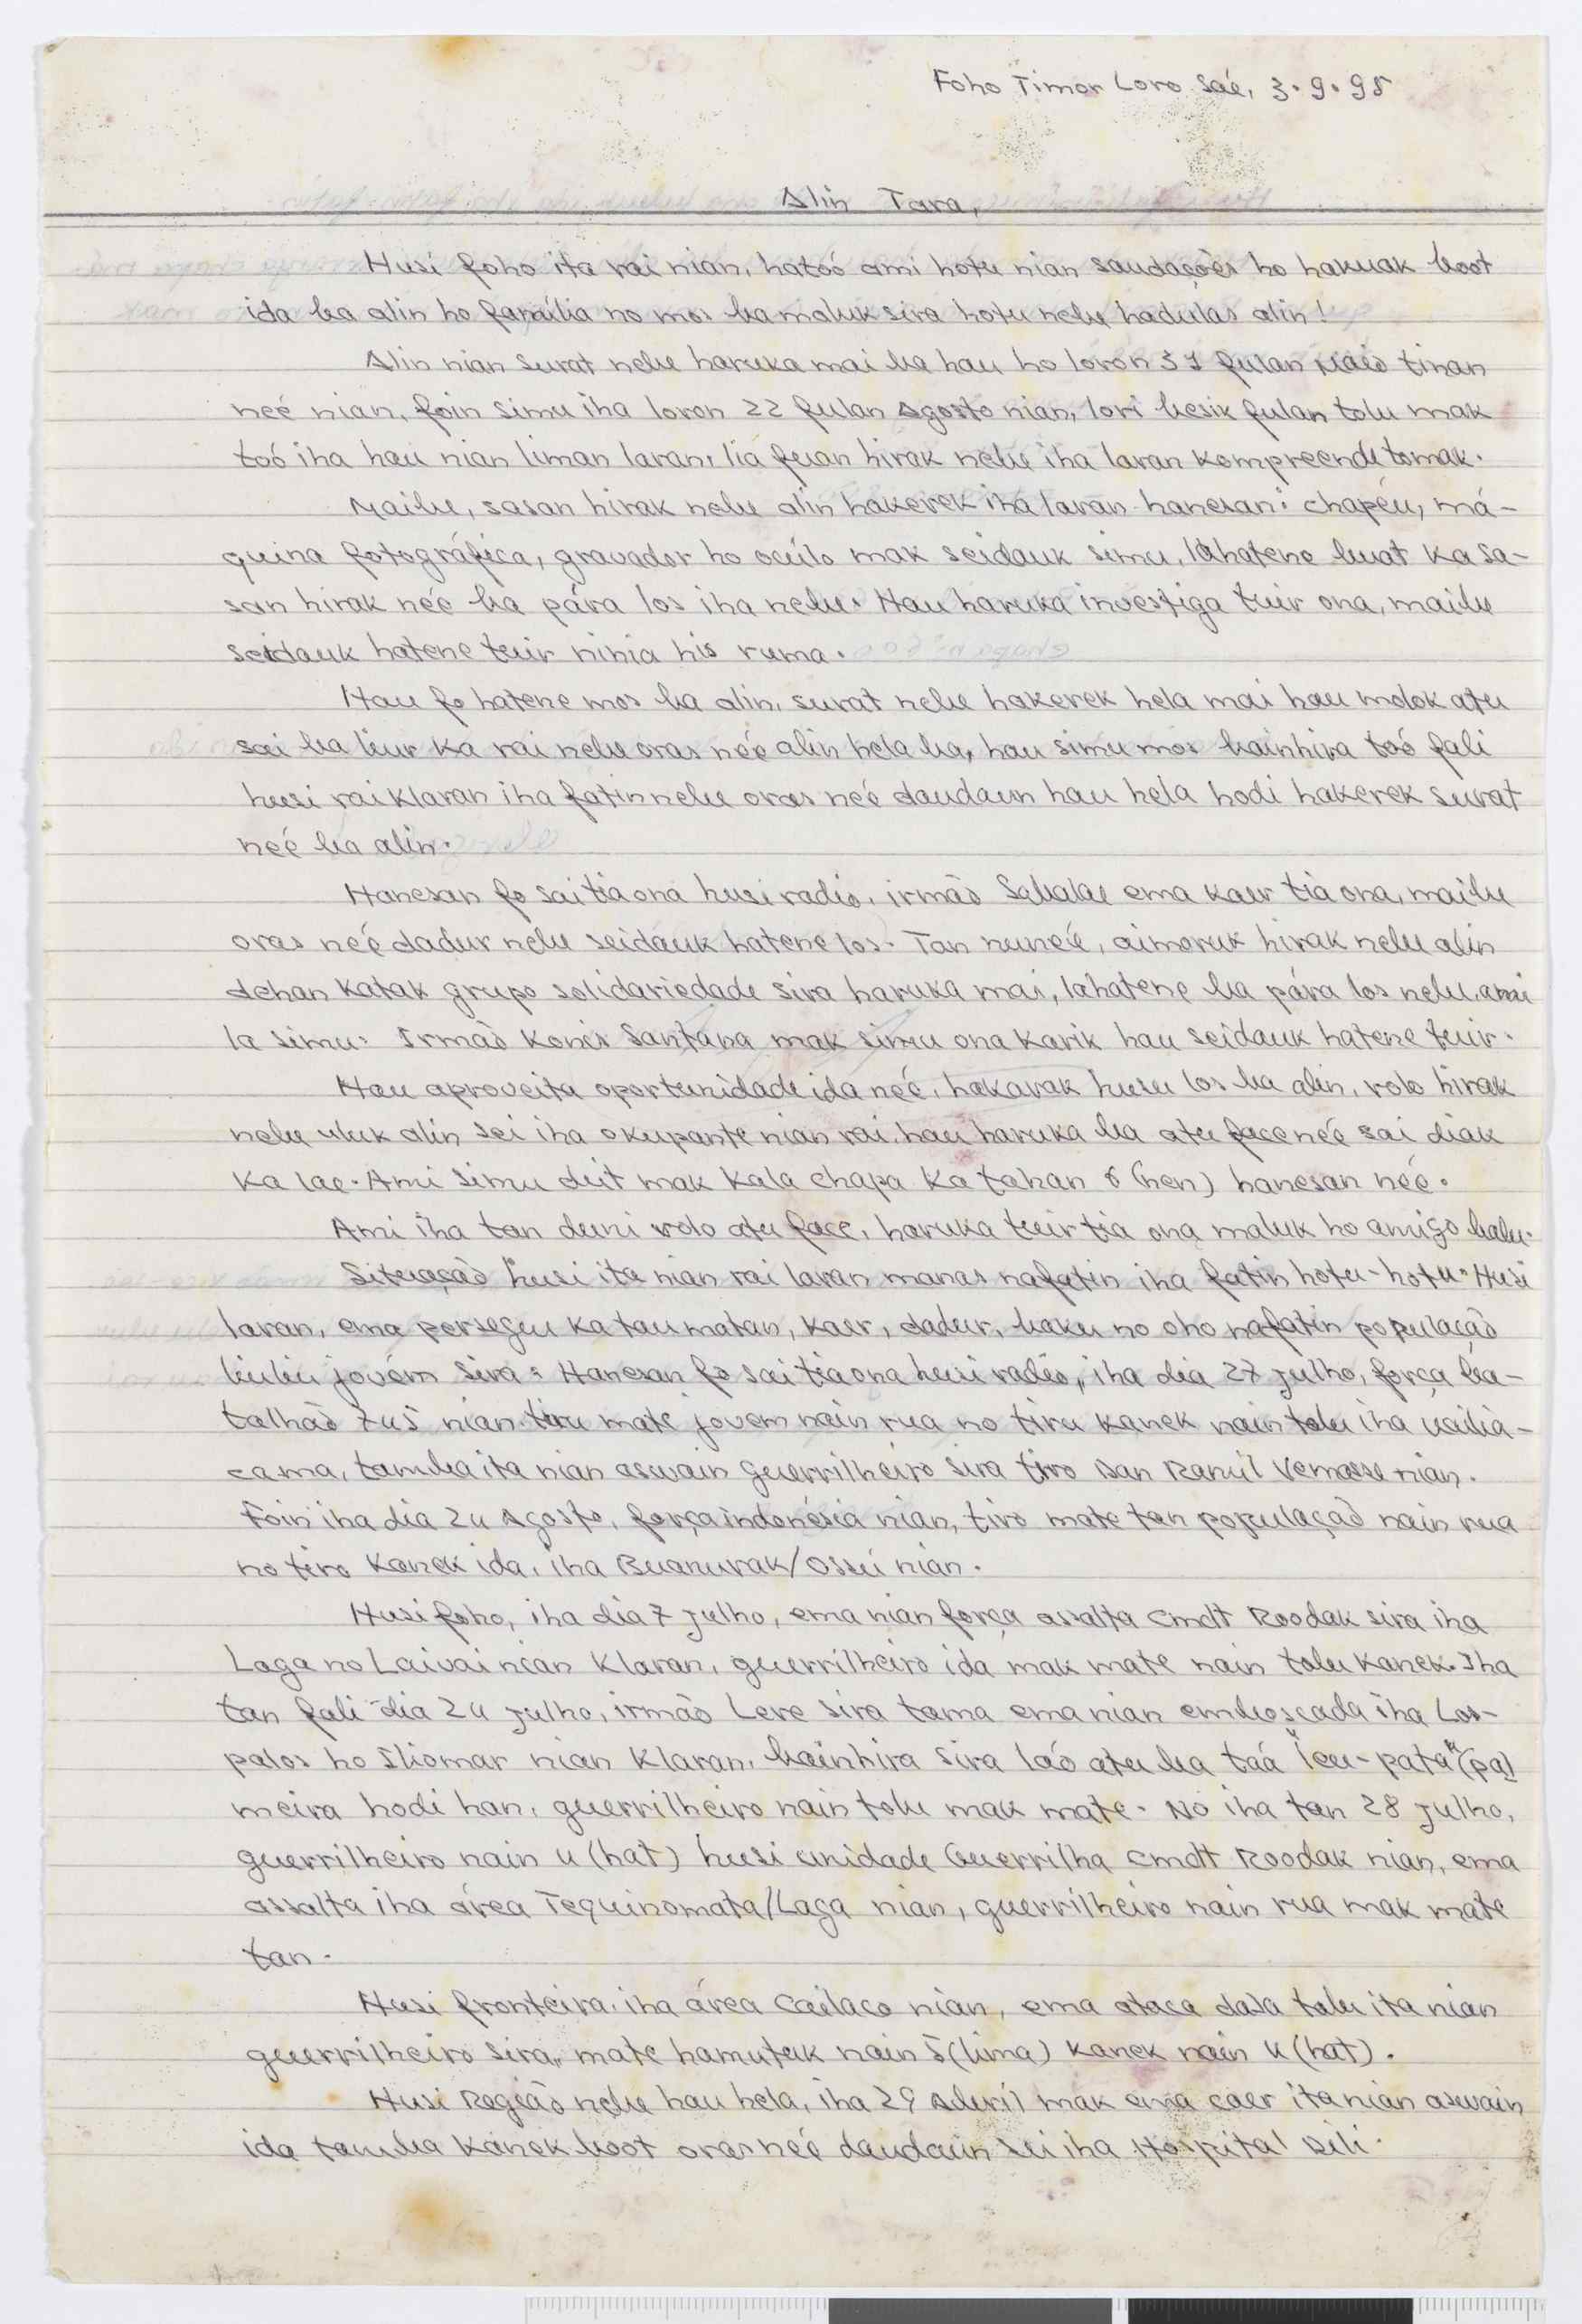 Foho Timor Loro Sáe, 3.9.95
Alin Tara,
Husi foho ita rai nian, hatoó ami hotu nian saudações ho hakuak boot
ida ba alin ho família no mos ba maluk sira hotu nebe hadulas alin!
Alin nian surat nebe haruka mai ba hau ho loron 31 fulan Maio tinan
neé nian, foin simu iha loron 22 fulan Agosto nian, lori besik fulan tolu mak
toó iha hau nian liman laran, lia fuan hirak nebe iha laran kompreende tomak.
Maibe, sasan hirak nebe alin hakerek iha laran hanesan: chapéu, má-
quina fotográfica, gravador ho oculo mak seidauk simu, lahatene buat ka sa-
san hirak neé ba pára los iha nebe. Hau haruka investiga tuir ona, maibe
seidauk hatene tuir ninia his ruma.
Hau fo hatene mos ba alin, surat nebe hakerek hela mai hau molok atu
sai ba liur ka rai nebe oras neé alin hela ba, hau simu mos bainhira toó fali
husi rai klaran iha fatin nebe oras neé daudaun hau hela hodi hakerek surat
neé ba alin.
Hanesan fo sai tia ona husi radio, irmão Sabalae ema kaer tia ona, maibe
oras neé dadur nebe seidauk hatene los. Tan neneé, aimoruk hirak nebe alin
dehan katak grupo solidariedade sira haruka mai, lahatene ba pára los nebe, ami
la simu. Irmão Konis Santana mak simu ona karik hau seidauk hatene tuir.
Hau aproveita oportunidade ida neé, hakarak husu los ba alin, rolo hirak
nebe uluk alin sei iha okupante nian rai, hau haruka ba atu face neé sai diak
ka lae. Ami simu deit mak kala chapa ka tahan 6 (nen) hanesan neé.
Ami iha tan duni rolo atu face, haruka tuir tia ona maluk ho amigo balu.
Situação husi ita nian rai laran manas nafatin iha fatin hotu-hotu. Husi
laran, ema persegeu ka tau matan, kaer, dadur, baku no oho nafatin população
liuliu jovém sira. Hanesan fo sai tia ona husi radio, iha dia 27 julho, força ba-
talhão 745 nian tiru mate jovem nain rua no tiru kanek nain tolu iha Uailia-
cama, tamba ita nian aswain guerrilheiro sira tiro Dan Ramil Vemasse nian.
Foin iha dia 24 Agosto, força indonésia nian, tiro mate tan população nain rua
no tiro kanek ida, iha Buanurak/Ossú nian.
Husi foho, iha dia 7 julho, ema nian força assalta Cmdt Roodak sira iha
Laga no Laivai nian klaran, guerrilheiro ida mak mate nain tolu kanek. Iha
tan fali dia 24 julho, irmão Lere sira tama ema nian emboscada iha Los-
palos ho Iliomar nian klaran, bainhira sira laó atu ba taá "leu-pata" (pal
meira hodi han, guerrilheiro nain tolu mak mate. No iha tan 28 julho,
guerrilheiro nain 4 (hat) husi unidade Guerrilha Cmdt Roodak nian, ema
assalta iha área Tequinomata/Laga nian, guerrilheiro nain rua mak mate
tan.
Husi fronteira, iha área Cailaco nian, ema ataca dala tolu ita nian
guerrilheiro sira, mate hamutuk nain 5 (lima) kanek nain 4 (hat).
Husi Região nebe hau hela, iha 29 Abril mak ema caer ita nian aswain
ida tamba kanek boot oras neé daudaun sei iha Hospital Dili.